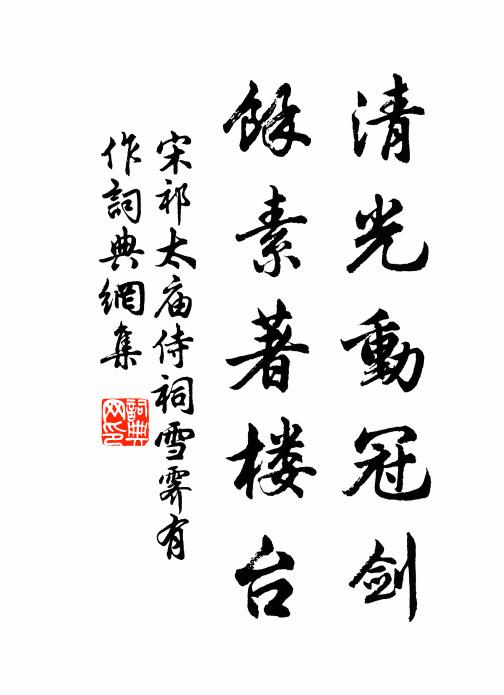 清光動冠劍
餘素著楼台
宋祁太庙侍祠雪霽有
作詞典網集
詞典
网印